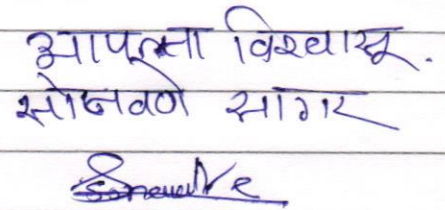 आपला विश्वासू.
सोनवणे सागर